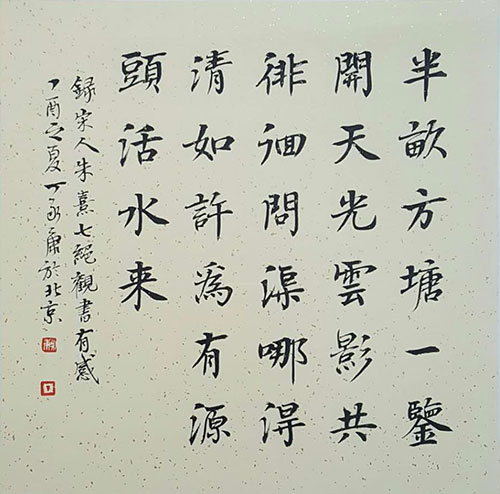 半畝方塘一鑒
開天光雲影共
徘徊問渠哪得
清如許為有源
頭活水来
録宋人朱熹七絕觀書有感
丁酉之夏丁永庸於北京